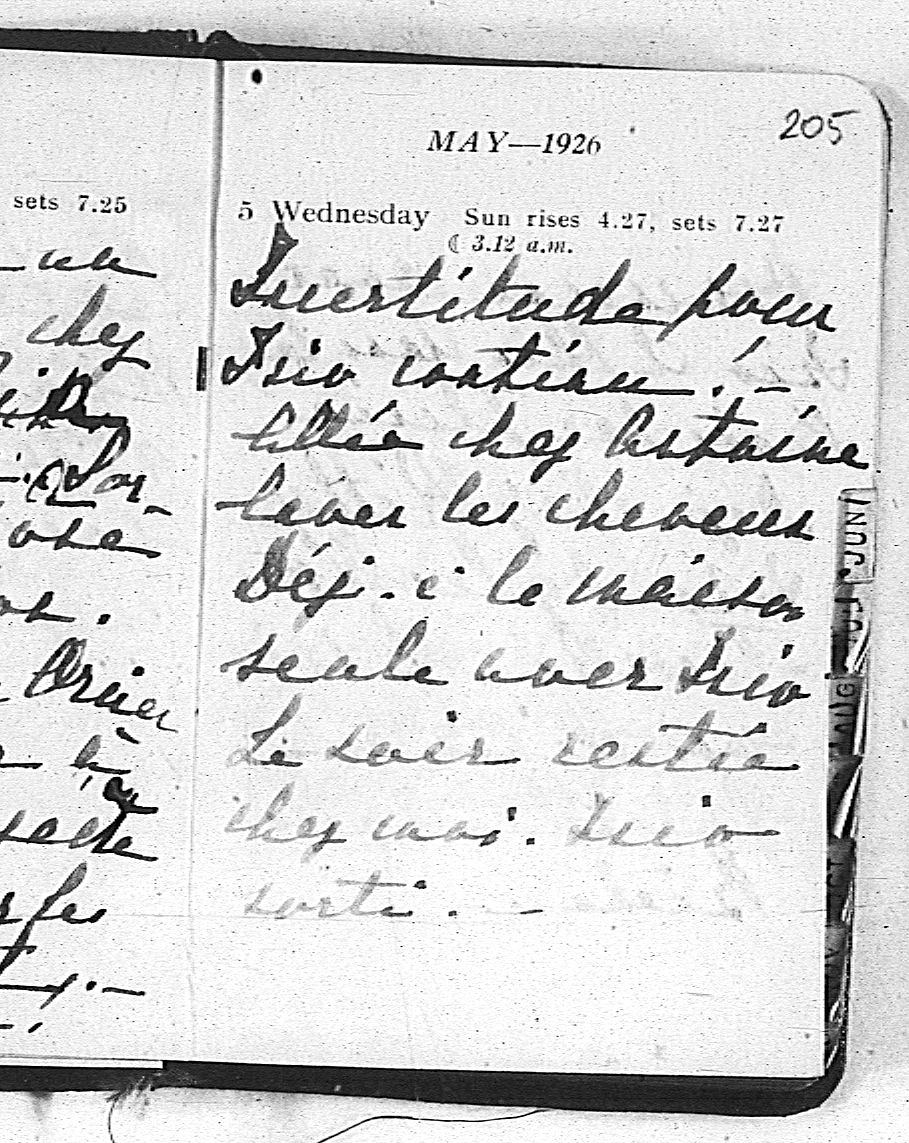 sets 7.25
un
chez
ose
Orier
à
205
MAY—1926
5 Wednesday Sun rises 4.27, sets 7.27
☾ 3.12 a.m.
Incertitude pour
Isio continu! –
Allée chez Antoine
laver les cheveux
Déj. à la maison
seule avec Isio
Le soir restée
chez moi. Isio
sorti. –
JUNE
AUG